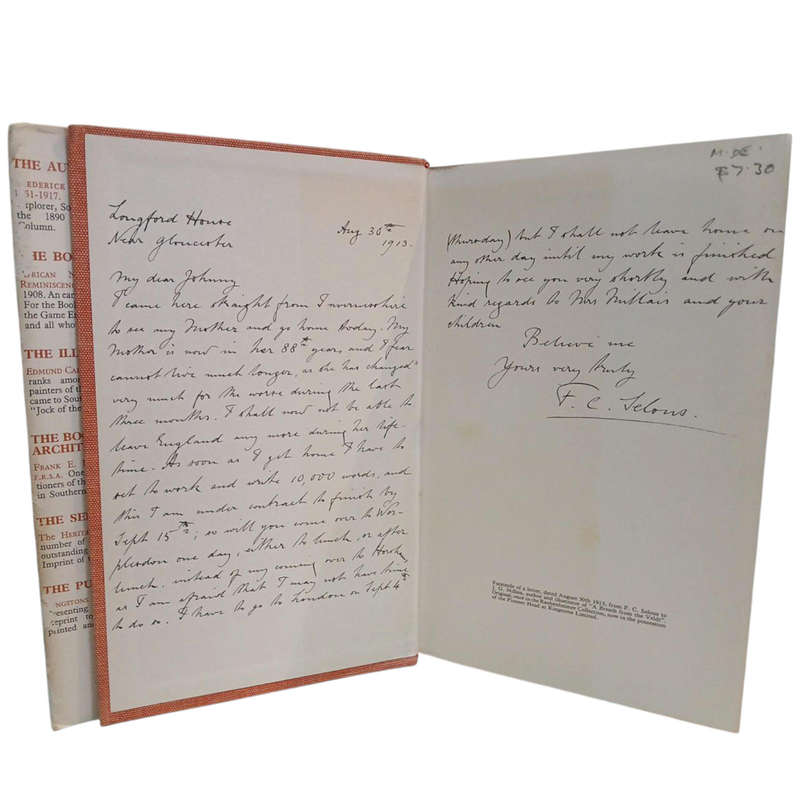 THE AU
EDERICK
51-1917.
xplorer, So
the 1890
Column.
HE BO
FRICAN N
REMINISCENC
1908. An ear
For the Book
the Game Ex
and all who
THE ILL
EDMUND CAL
ranks amo
painters of th
came to Sout
"Jock of the
THE BOO
ARCHIT
FRANK E.
F.R.S.A. One
tioners of the
in Southern
THE SE
The HERITA
number of
outstanding
Imprint of
THE PU
NGITONS
resenting
eprint to
printed and
Longford House
Near Gloucester
Aug 30th
1913.
My dear Johnny
I came here straight from Invernesshire
to see my Mother and go home today. My
Mother is now in her 88th year and I fear
cannot live much longer, as she has changed
very much for the worse during the last
three months. I shall now not be able to
leave England any more during her life-
time. As soon as I get home I have to
set to work and write 10,000 words, and
this I am under contract to finish by
Sept 15th; so will you come over to Wor-
plesdon one day, either to lunch, or after
lunch, instead of my coming over to Horsley
as I am afraid that I may not have time
to do so. I have to go to London on Sept 4th
M.DE.
£7.30
(Thursday) but I shall not leave home on
any other day until my work is finished
Hoping to see you very shortly and with
kind regards to Mrs Millais and your
children
Believe me
Yours very truly
F. C. Selous.
Facsimile of a letter, dated August 30th 1913, from F. C. Selous to
J. G. Millais, author and illustrator of "A Breath from the Veldt".
Original, once in the Rackenheimer Collection, now in the possession
of the Pioneer Head at Kingstons Limited.